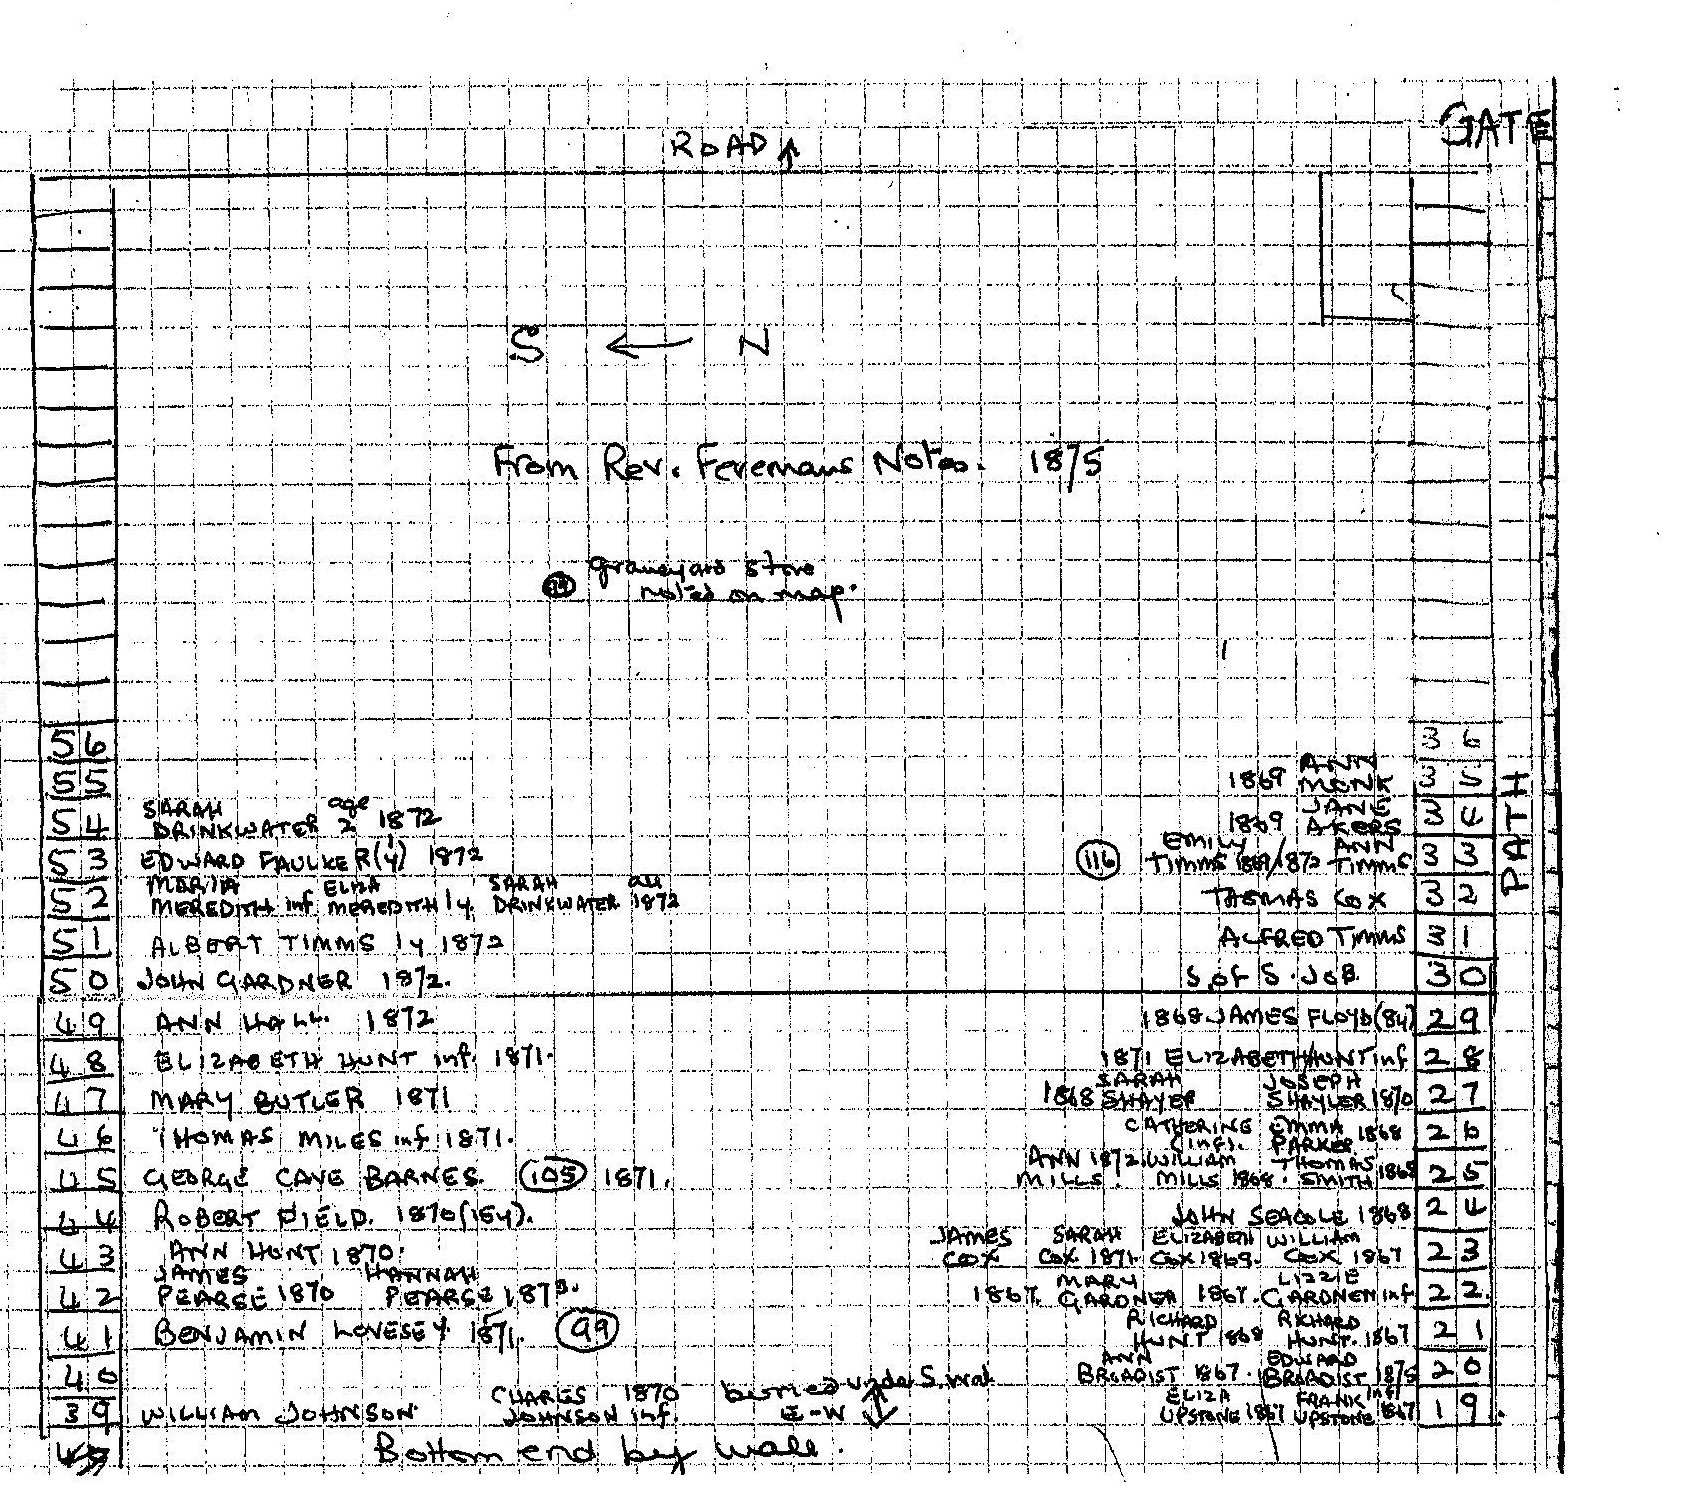 GATE
ROAD ↑
S ← N
From Rev. Feremans Notes. 1875
graveyard stone
noted on map.
PATH
56
36
55
1869 ANN MONK 35
54 SARAH DRINKWATER age 2 1872
1869 JANE AKERS 34
53 EDWARD FAULKER (y) 1872
116 EMILY TIMMS 1869/1872 ANN TIMMS 33
52 MARIA MEREDITH inf ELIZA MEREDITH 1y SARAH DRINKWATER 1872
THOMAS COX 32
51 ALBERT TIMMS 1y 1872
ALFRED TIMMS 31
50 JOHN GARDNER 1872.
S of S. JOB 30
49 ANN HALL 1872
1868 JAMES FLOYD (84) 29
48 ELIZABETH HUNT inf. 1871.
1871 ELIZABETH HUNT inf 28
47 MARY BUTLER 1871
1868 SARAH SHAYER JOSEPH SHAYLER 1870 27
46 THOMAS MILES inf 1871.
CATHERINE (inf). EMMA PARKER 1868 26
45 GEORGE CAVE BARNES. 105 1871.
ANN MILLS 1872. WILLIAM MILLS 1868. THOMAS SMITH 1868 25
44 ROBERT FIELD. 1870 (15y).
JOHN SEACOLE 1868 24
43 ANN HUNT 1870.
JAMES COX SARAH COX 1871. ELIZABETH COX 1869. WILLIAM COX 1867 23
42 JAMES PEARSE 1870 HANNAH PEARSE 1873.
1867. MARY GARDNER 1867. LIZZIE GARDNER inf 22.
41 BENJAMIN LOVESEY 1871. 99
RICHARD HUNT 1868 RICHARD HUNT. 1867 21
40
ANN BROADIST 1867. EDWARD BROADIST 1875 20
39 WILLIAM JOHNSON. CHARLES JOHNSON inf. 1870 buried under S. wall E-W
ELIZA UPSTONE 1867 FRANK UPSTONE inf 1867 19.
Bottom end by wall.